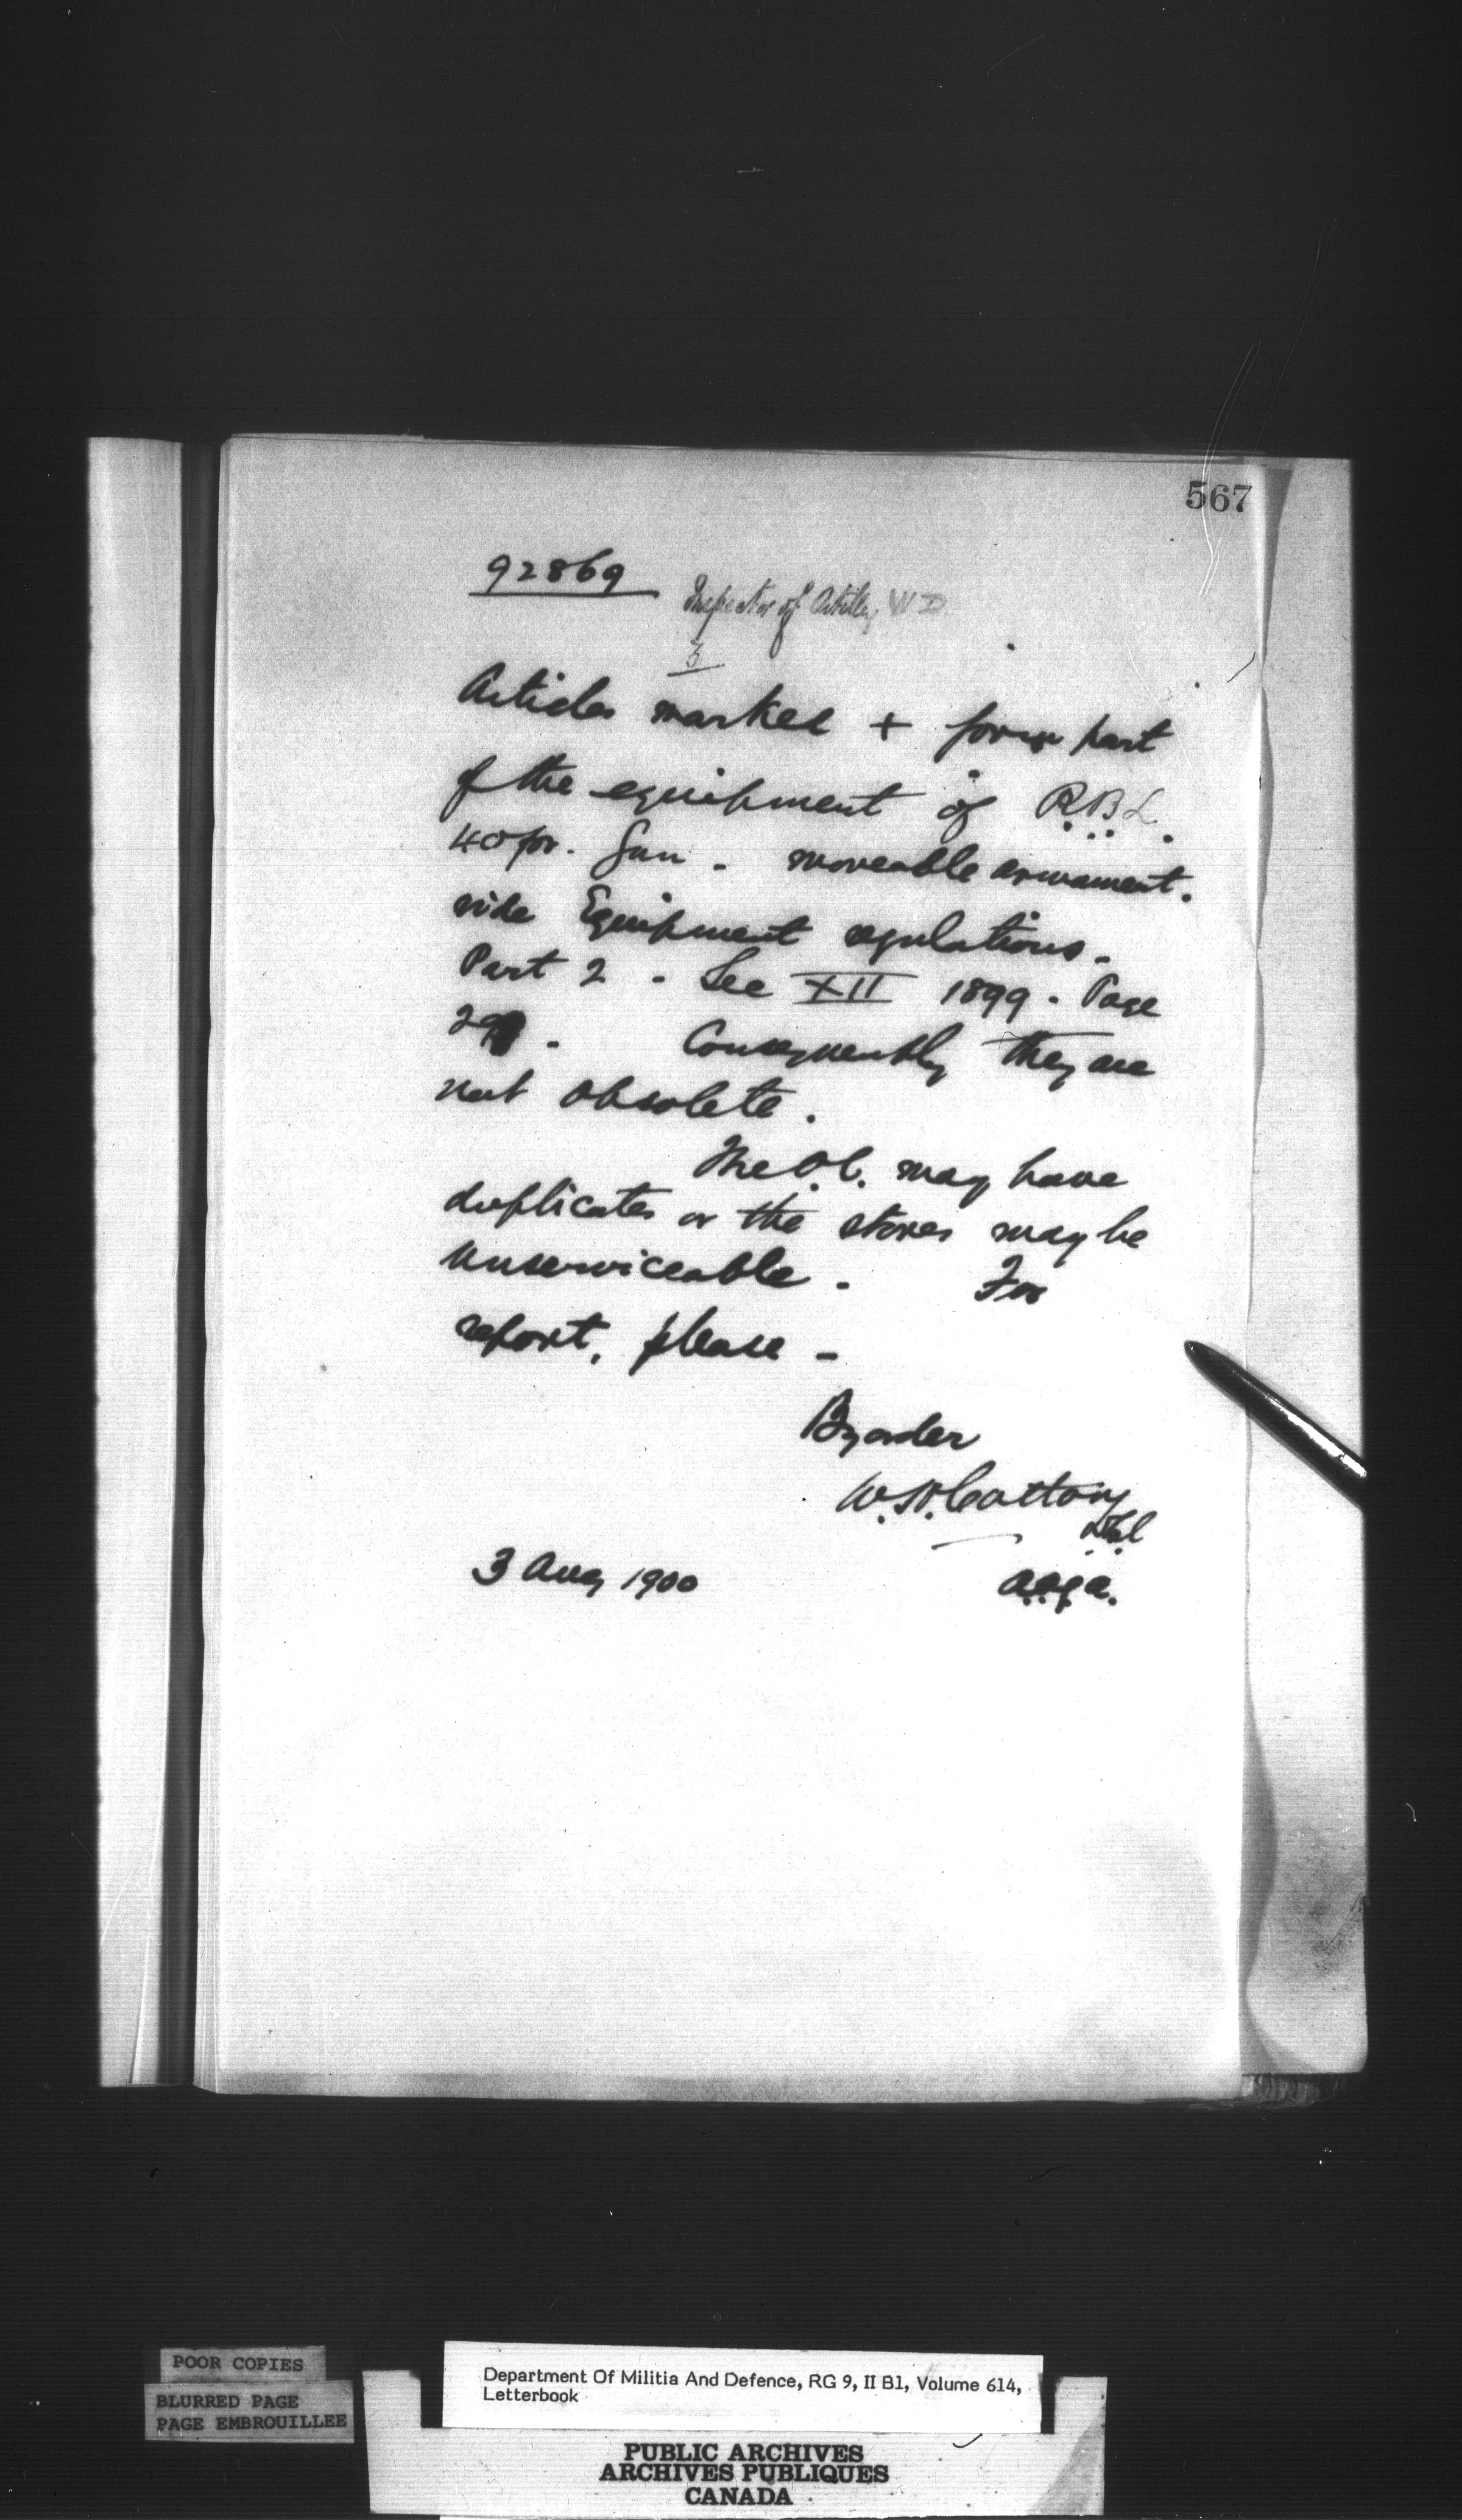 567
92869
Inspector of Artillery W.D.
3
Articles marked + form part
of the equipment of R.B.L.
40 pr. Gun - moveable armament.
vide Equipment regulations.
Part 2 - Sec XII 1899 - Page
Consequently they are
not obsolete.
The O.C. may have
duplicates or the stores may be
unserviceable - For
report, please -
By order
W.H. Cotton
A.A.G.A.
3 Aug 1900
POOR COPIES
BLURRED PAGE
PAGE EMBROUILLEE
Department Of Militia And Defence, RG 9, II B1, Volume 614,
Letterbook
PUBLIC ARCHIVES
ARCHIVES PUBLIQUES
CANADA